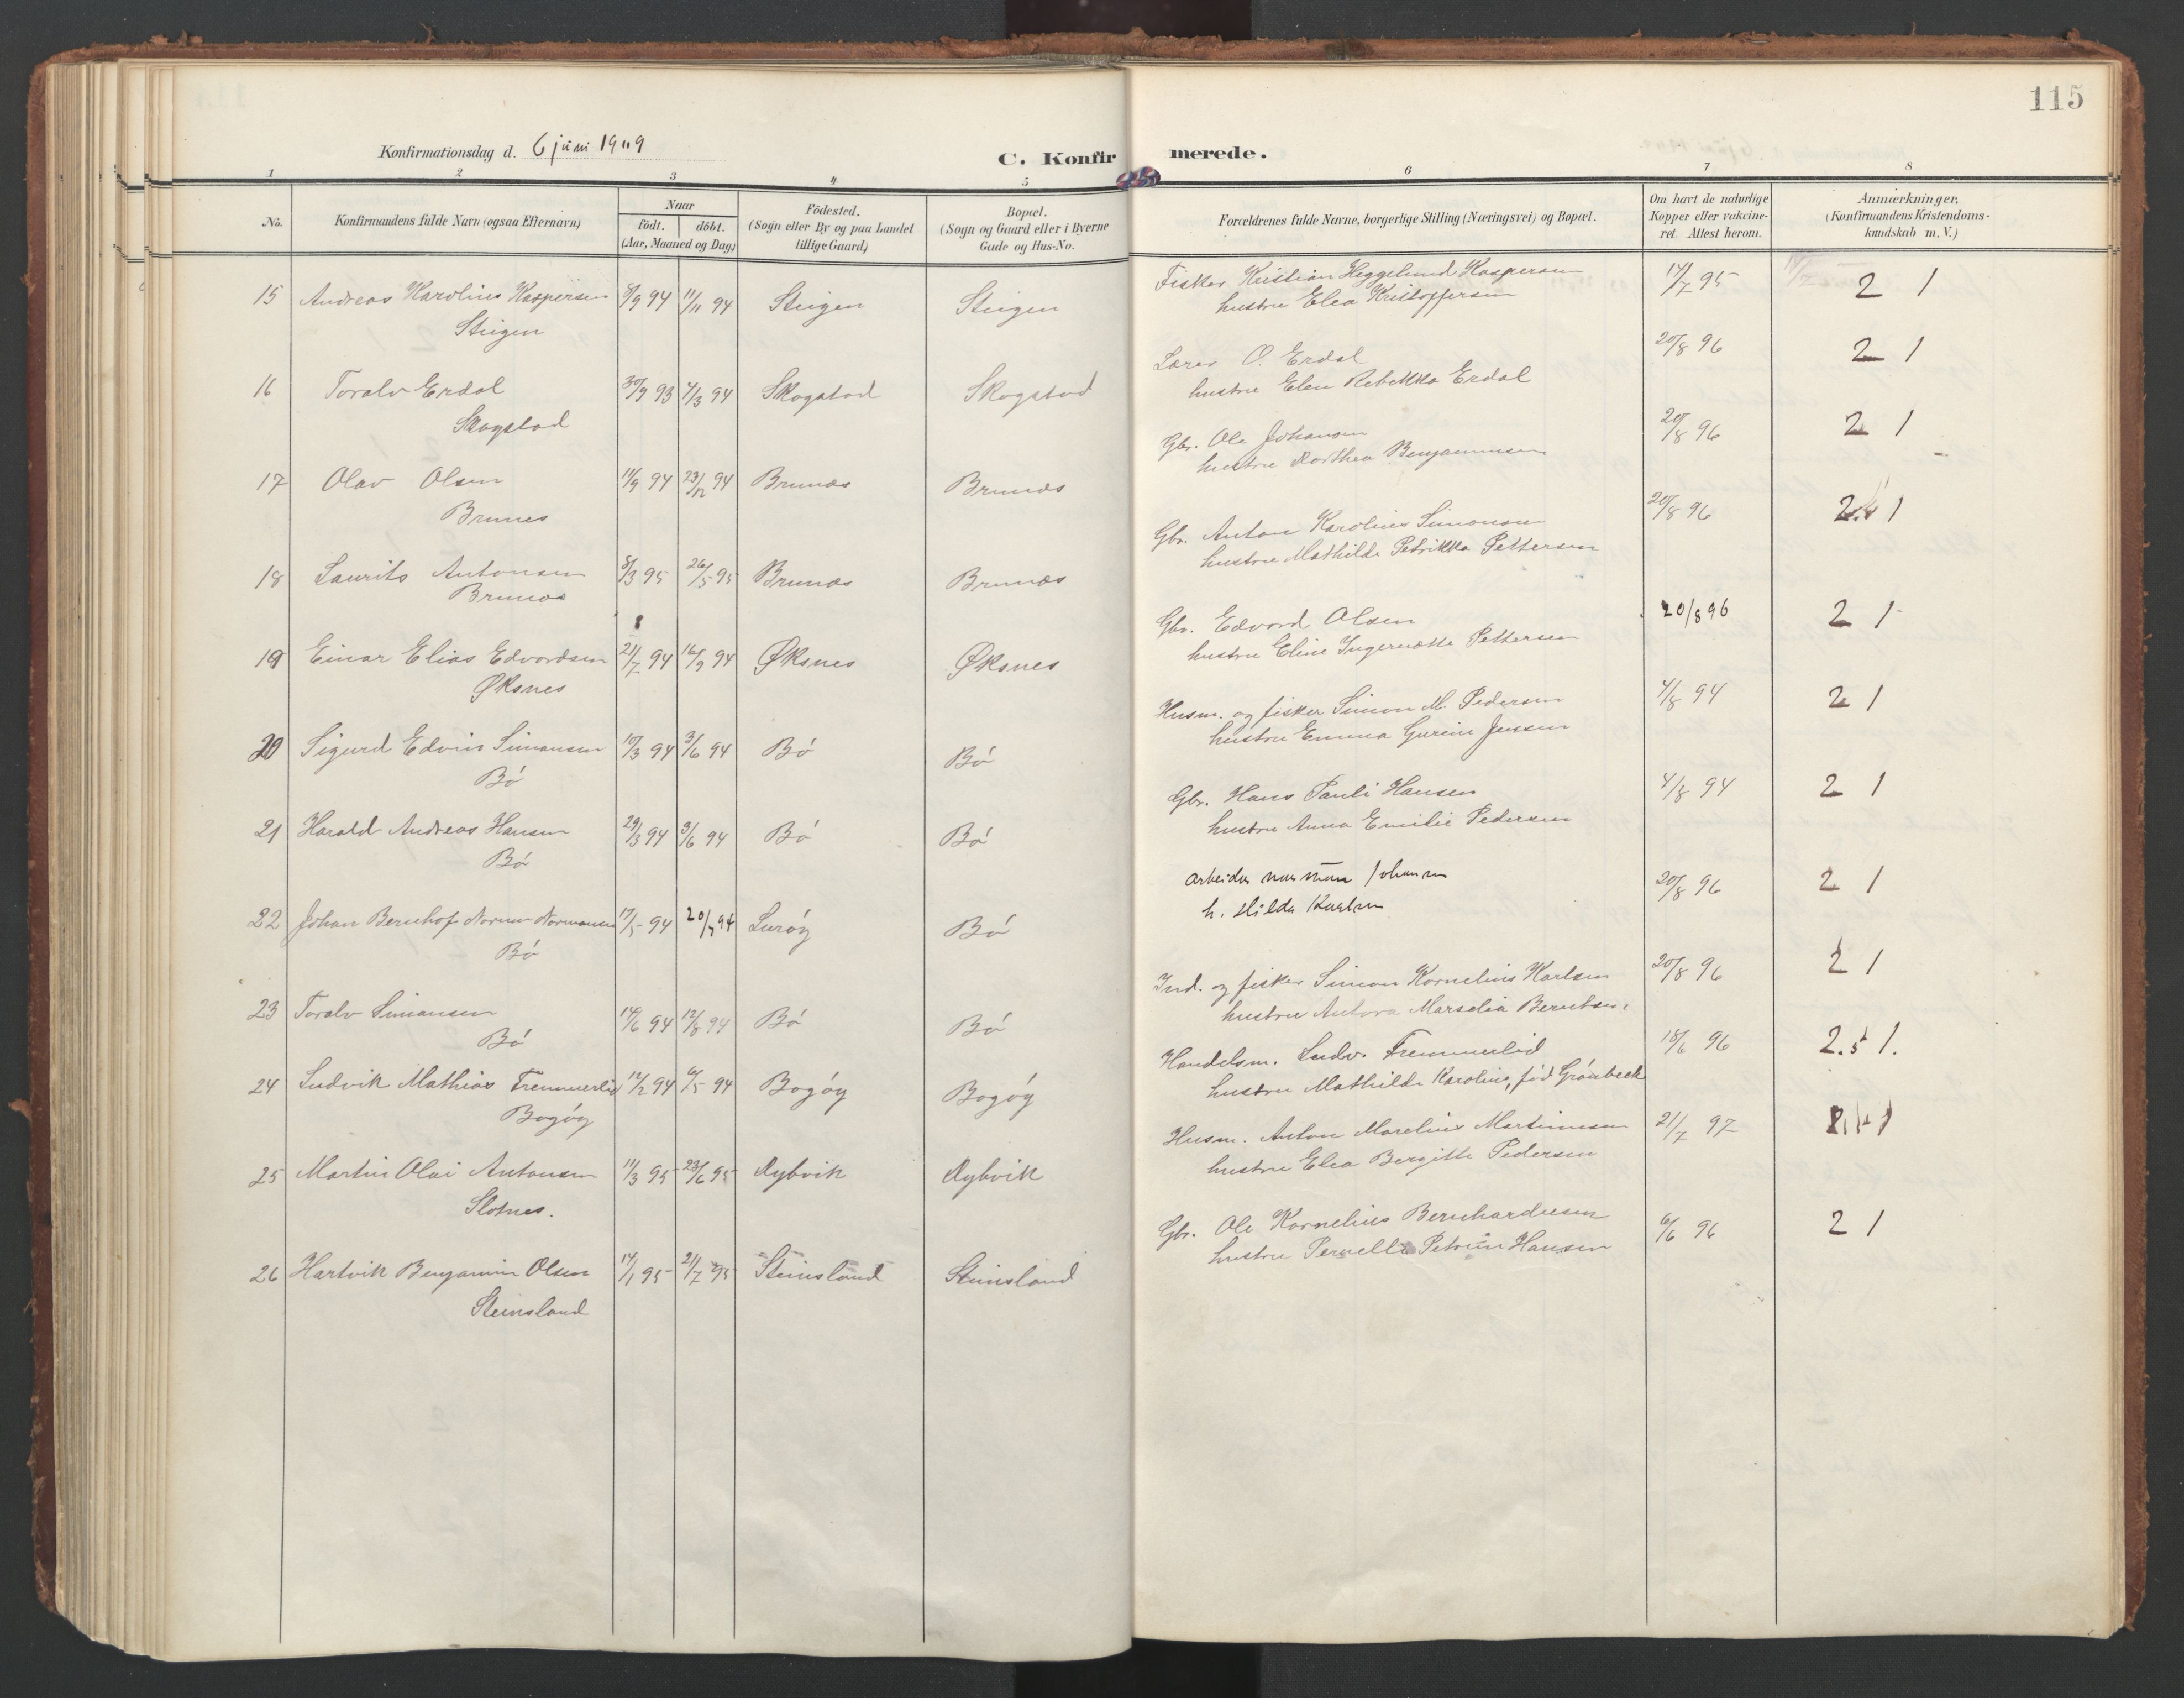 115
Konfirmationsdag d. 6 juni 1909
C. Konfirmerede.
1 2 3 4 5 6 7 8
No. Konfirmandens fulde Navn (ogsaa Efternavn) Naar födt. döbt. (Aar, Maaned og Dag) Födested. (Sogn eller By og paa Landet tillige Gaard) Bopæl. (Sogn og Gaard eller i Byerne Gade og Hus-No. Forældrenes fulde Navne, borgerlige Stilling (Næringsvei) og Bopæl. Om havt de naturlige Kopper eller vakcineret. Attest herom. Anmærkninger, (Konfirmandens Kristendomskundskab m. V.)
15 Andreas Karolius Kaspersen 8/9 94 11/11 94 Steigen Steigen Fisker Kristian Heggelund Kaspersen 14/7 95 2 1
Steigen hustru Elea Kristoffersen
16 Toralv Erdal 30/9 93 4/3 94 Skogstad Skogstad Lærer O. Erdal 20/8 96 2 1
Skogstad hustru Elen Rebekka Erdal
17 Olav Olsen 11/9 94 23/12 94 Brunæs Brunæs Gbr. Ole Johansen 20/8 96 2 1
Brunes hustru Dorthea Benjaminsen
18 Laurits Antonsen 8/3 95 26/5 95 Brunæs Brunæs Gbr. Anton Karolius Simonsen 20/8 96 1
Brunæs hustru Mathilde Petrikka Pettersen
19 Einar Elias Edvardsen 21/7 94 16/9 94 Øksnes Øksnes Gbr. Edvard Olsen 20/8 96 2 1
Øksnes hustru Eline Ingernætte Pettersen
20 Sigurd Edvin Simonsen 10/3 94 3/6 94 Bö Bö Husm. og fisker Simon M. Pedersen 4/8 94 2 1
Bö hustru Emma Gurine Jensen
21 Harald Andreas Hansen 29/3 94 3/6 94 Bö Bö Gbr. Hans Pauli Hansen 4/8 94 2 1
Bö hustru Anna Emilie Pedersen
22 Johan Bernhof Normansen 17/5 94 20/7 94 Luröy Bö Arbeider Norman Johansen 20/8 96 2 1
Bö h. Hilda Karlsen
23 Toralv Simonsen 14/6 94 12/8 94 Bö Bö Ind. og fisker Simon Kornelius Karlsen 20/8 96 2 1
Bö hustru Antora Marselia Berntsen
24 Ludvik Mathias Fremmerlid 12/2 94 6/5 94 Bogöy Bogöy Handelsm. Ludv. Fremmerlid 18/6 96 2.5 1.
Bogöy hustru Mathilde Karoline, föd Grönbeck
25 Martin Olai Antonsen 11/3 95 23/6 95 Dybvik Dybvik Husm. Anton Marelius Martinusen 21/7 97 1
Slotnes. hustru Elea Bergitte Pedersen
26 Hartvik Benjamin Olsen 14/1 95 21/7 95 Steinsland Steinsland Gbr. Ole Kornelius Bernhardusen 6/6 96 2 1
Steinsland hustru Pernella Petrine Hansen